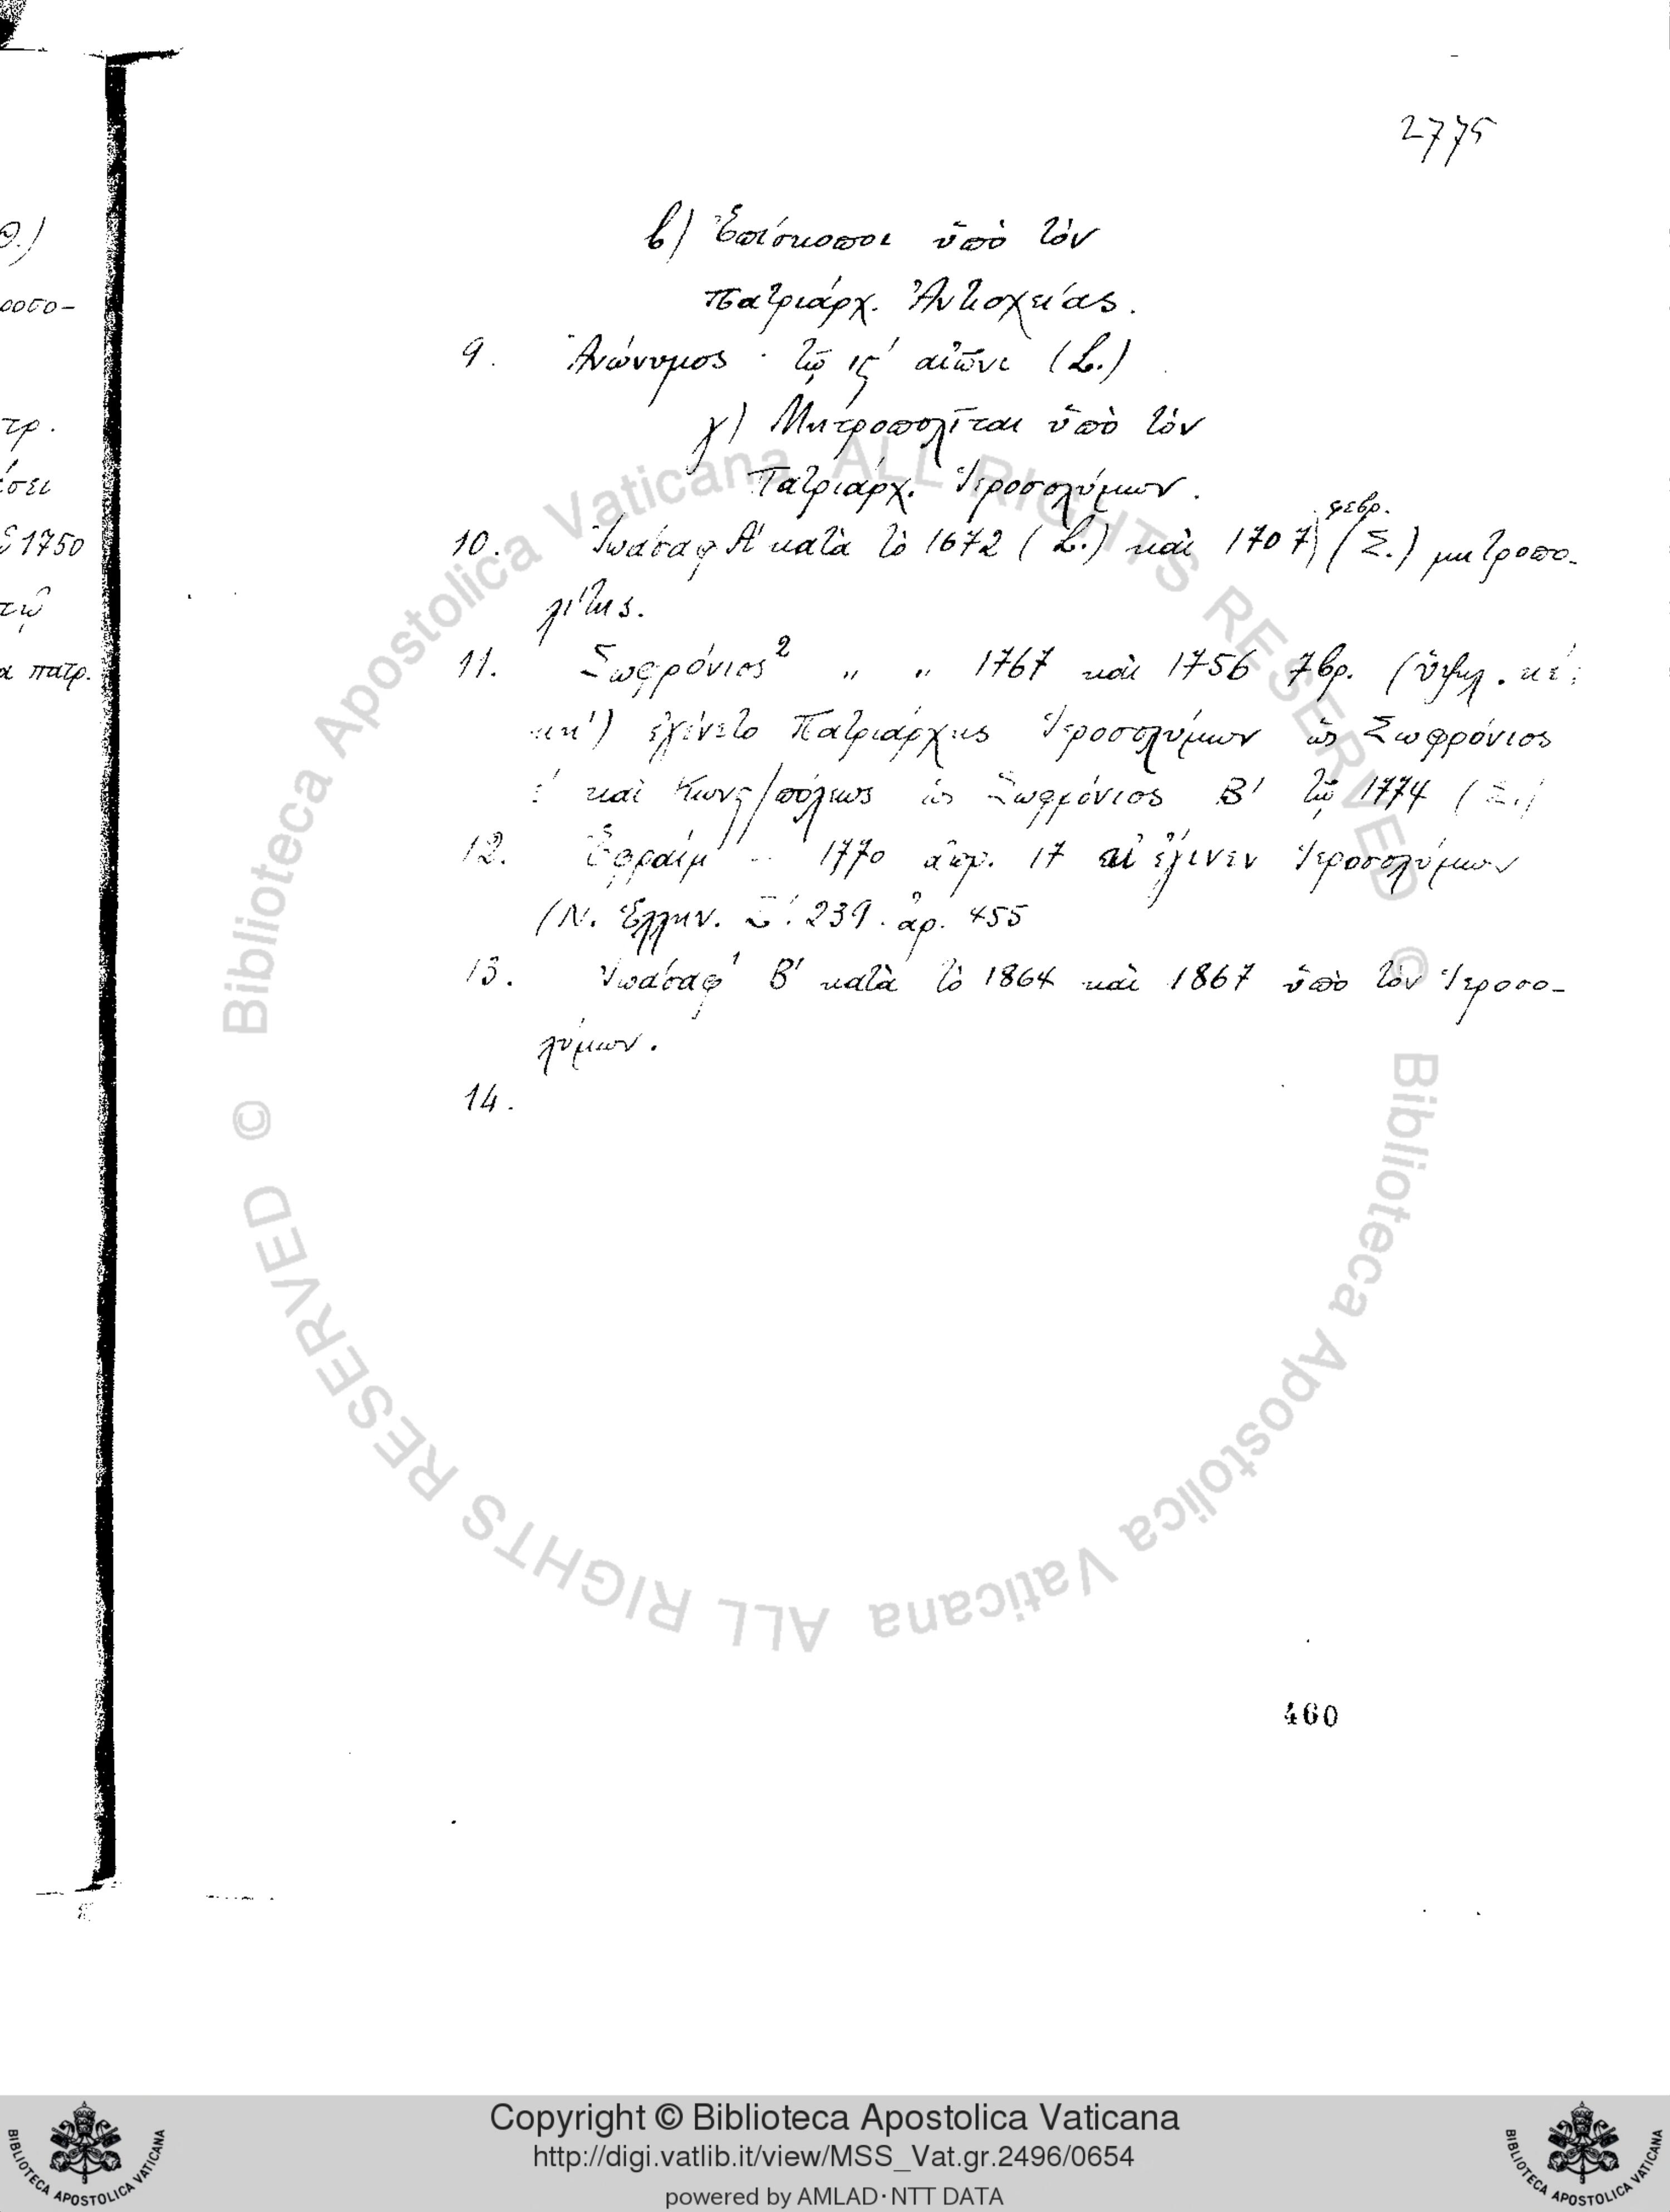 2775
β) Ἐπίσκοποι ὑπὸ τὸν
Πατριάρχ. Ἀντιοχείας.
9. Ἀνώνυμος · τῷ ις΄ αἰῶνι (L.)
γ) Μητροπολῖται ὑπὸ τὸν
Πατριάρχ. Ἱεροσολύμων.
φεβρ.
10. Ἰωάσαφ Α΄ κατὰ τὸ 1672 (L.) καὶ 1707 (Σ.) μητροπο-
λίτης.
11. Σωφρόνιος² 〃 〃 1767 καὶ 1756 7βρ. (ὑψηλ. κε΄
κη΄) ἐγένετο Πατριάρχης Ἱεροσολύμων ὡς Σωφρόνιος
καὶ Κωνς/πόλεως ὡς Σωφρόνιος Β΄ τῷ 1774 (Σ.)
12. Ἐφραίμ 1770 ἀπρ. 17 ἔγινεν Ἱεροσολύμων
(Ν. Ἑλλην. 239. ἀρ. 455
13. Ἰωάσαφ Β΄ κατὰ τὸ 1864 καὶ 1867 ὑπὸ τὸν Ἱεροσο-
λύμων.
14.
460
Θ.)
ροσο-
τρ.
έσει
1750
τῷ
α πατρ.
© Biblioteca Apostolica Vaticana ALL RIGHTS RESERVED © Biblioteca Apostolica Vaticana ALL RIGHTS RESERVED
Copyright © Biblioteca Apostolica Vaticana
http://digi.vatlib.it/view/MSS_Vat.gr.2496/0654
powered by AMLAD·NTT DATA
BIBLIOTECA APOSTOLICA VATICANA
BIBLIOTECA APOSTOLICA VATICANA